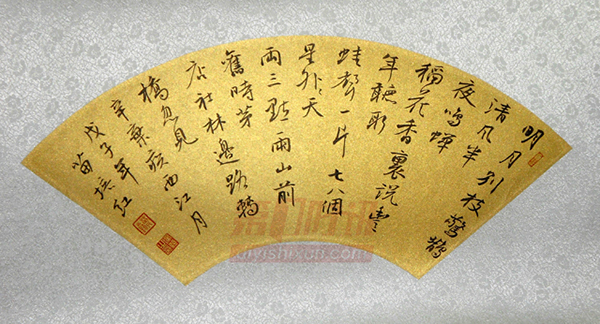 明月别枝驚鵲
清风半
夜鸣蝉
稻花香裏说豊
年聽取
蛙聲一片 七八個
星外天
两三點雨山前
舊時茅
店社林邊路轉
橋忽見
辛棄疾西江月
戊子年
振红